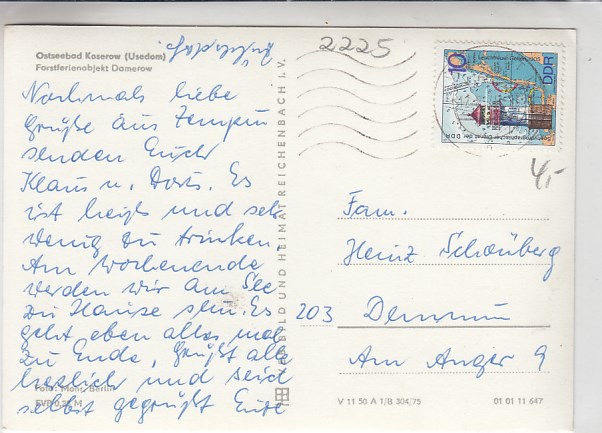 Ostseebad Koserow (Usedom)
Forstferienobjekt Damerow
2225
Nochmals liebe
Grüße aus Zempin
senden Euch
Klaus u. Doris. Es
ist heiß und sehr
wenig zu trinken.
Am Wochenende
werden wir am See
zu Hause sein. Es
geht eben alles mal
zu Ende, Grüßt alle
herzlich und seid
selbst gegrüßt Eure
Foto: Mohr, Berlin
BILD UND HEIMAT REICHENBACH I. V.
10
DDR
4,-
Fam.
Heinz Schönberg
203 Demmin
Am Anger 9
V 11 50 A 1/B 304/75
01 01 11 647